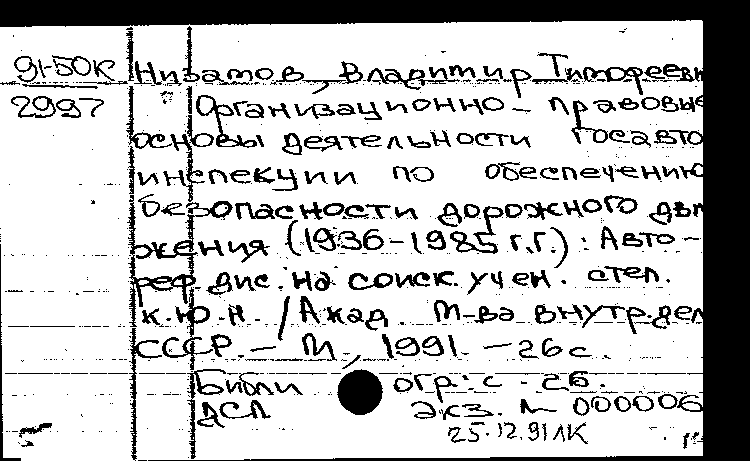 91-50К Низамов, Владимир Тимофееви
2997 Организационно-правовые
основы деятельности Госавто
инспекции по обеспечению
безопасности дорожного дви
жения (1936-1985 г.г.): Авто-
реф. дис. на соиск. учен. степ.
к.ю.н. / Акад. М-ва внутр. дел
СССР. - М., 1991. - 26 с.
Библи огр.: с. 26.
ДСП Экз. № 000006
25.12.91 ЛК